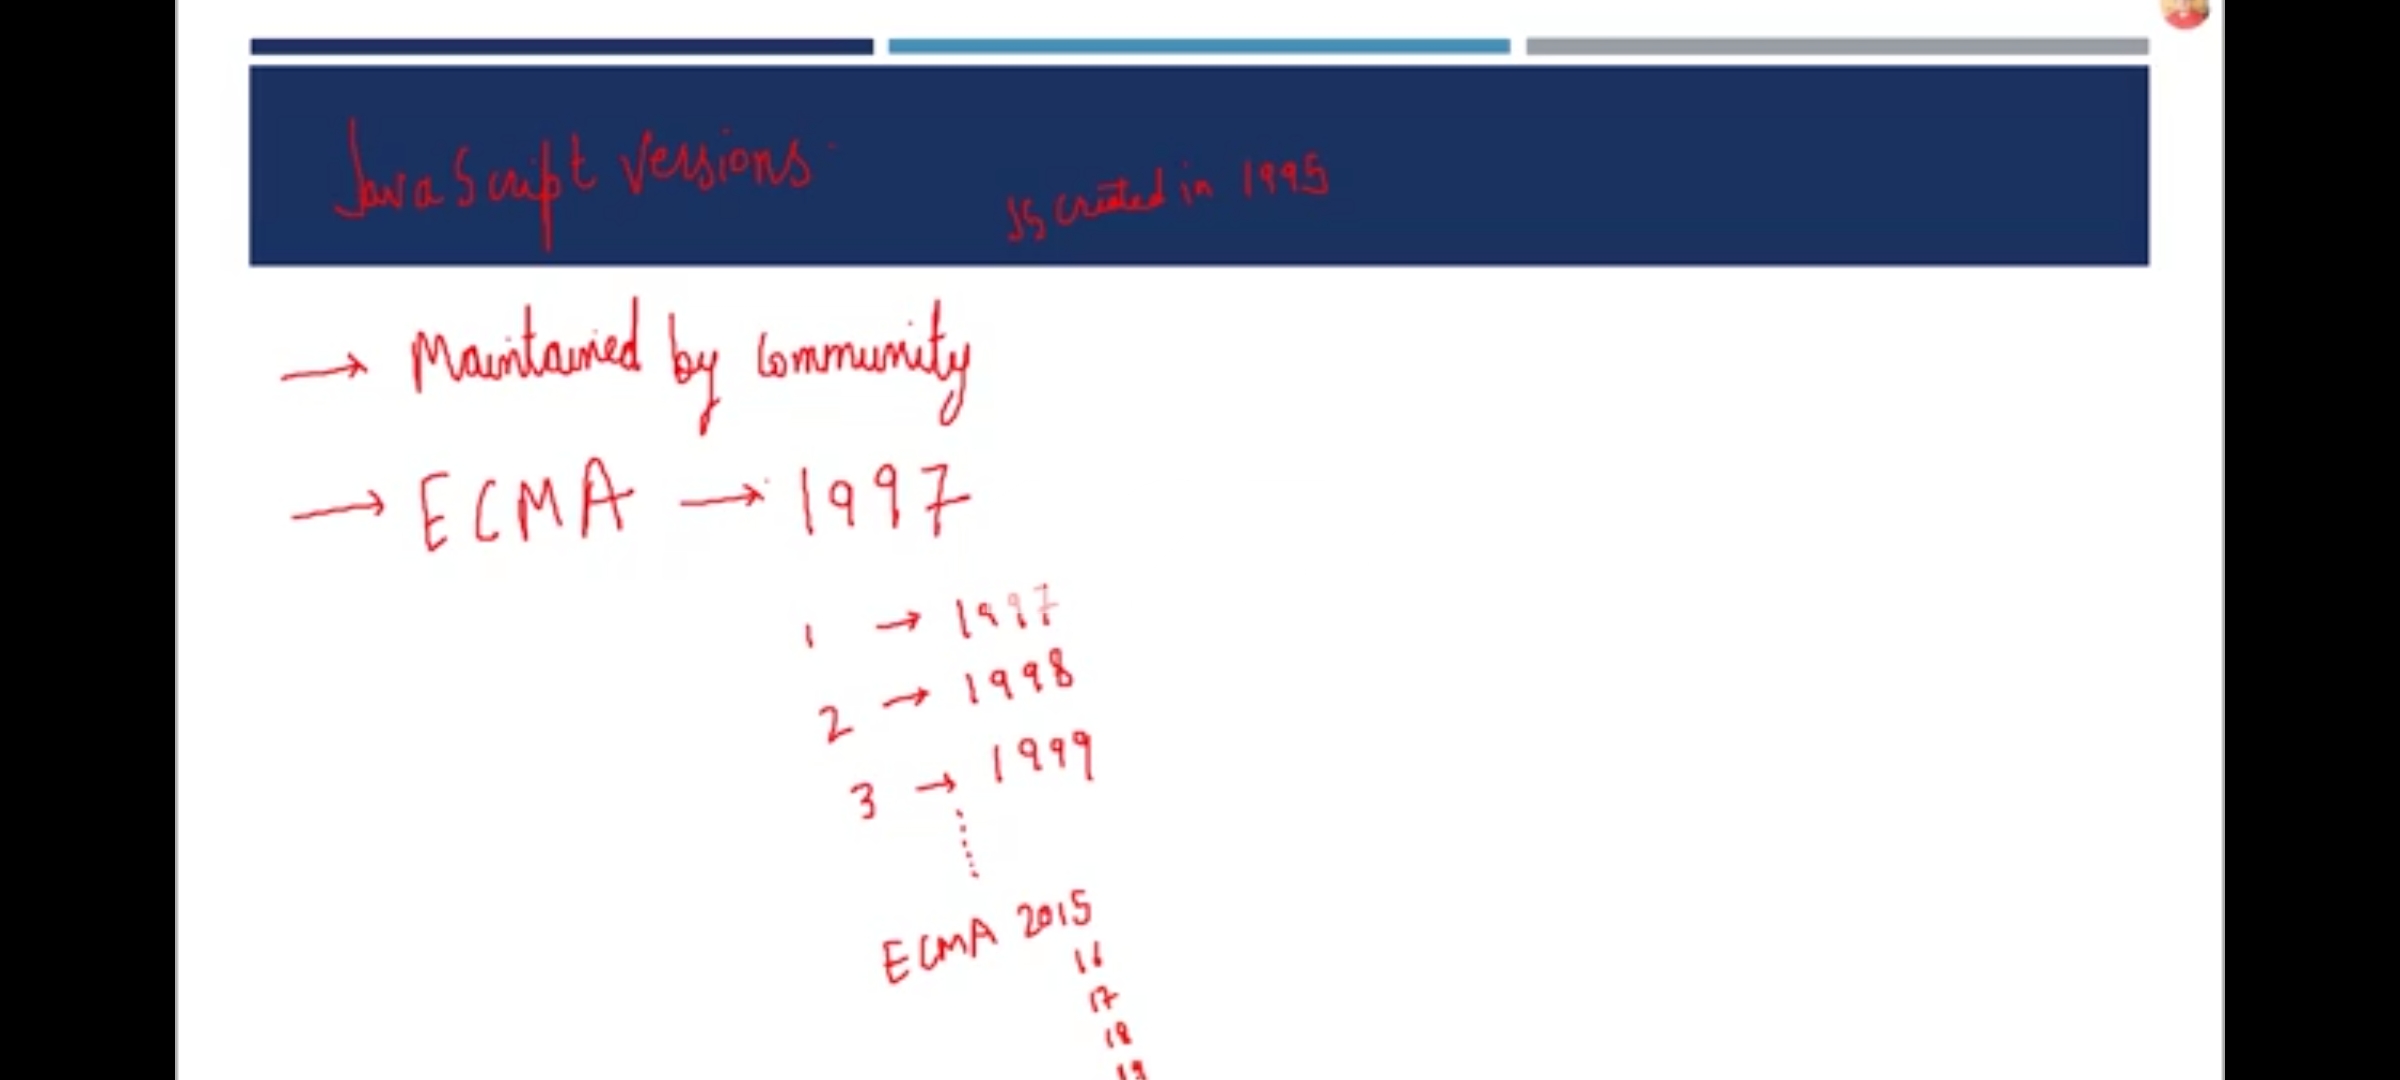 JavaScript Versions
JS created in 1995
→ Maintained by Community
→ ECMA → 1997
1 → 1997
2 → 1998
3 → 1999
......
ECMA 2015
16
17
18
19